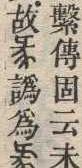 繫傳固云未
故譌為